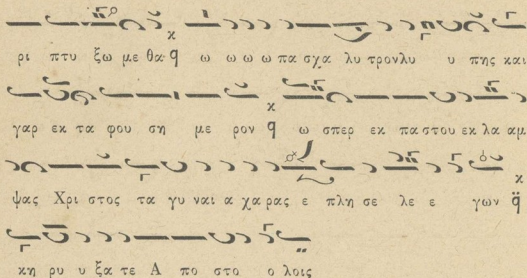 ρι πτυ ξω με θα ω ω ω ω πα σχα λυ τρονλυ υ πης και
γαρ εκ τα φου ση με ρον ω σπερ εκ πα στου εκ λα αμ
ψας Χρι στος τα γυ ναι α χαρας ε πλη σε λε ε γων
κη ρυ υ ξα τε Α πο στο ο λοις